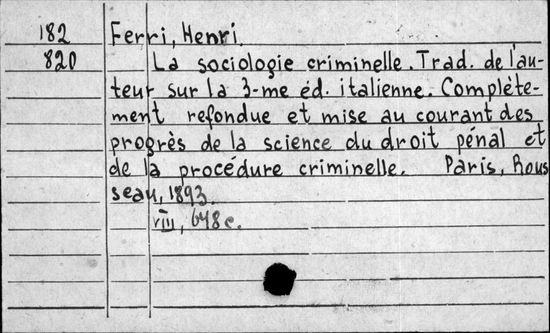 182 Ferri, Henri.
820 La sociologie criminelle. Trad. de l'au-
teur sur la 3-me éd. italienne. Complète-
ment refondue et mise au courant des
progrès de la science du droit pénal et
de la procédure criminelle. Paris, Rous
seau, 1893.
VIII, 648 c.